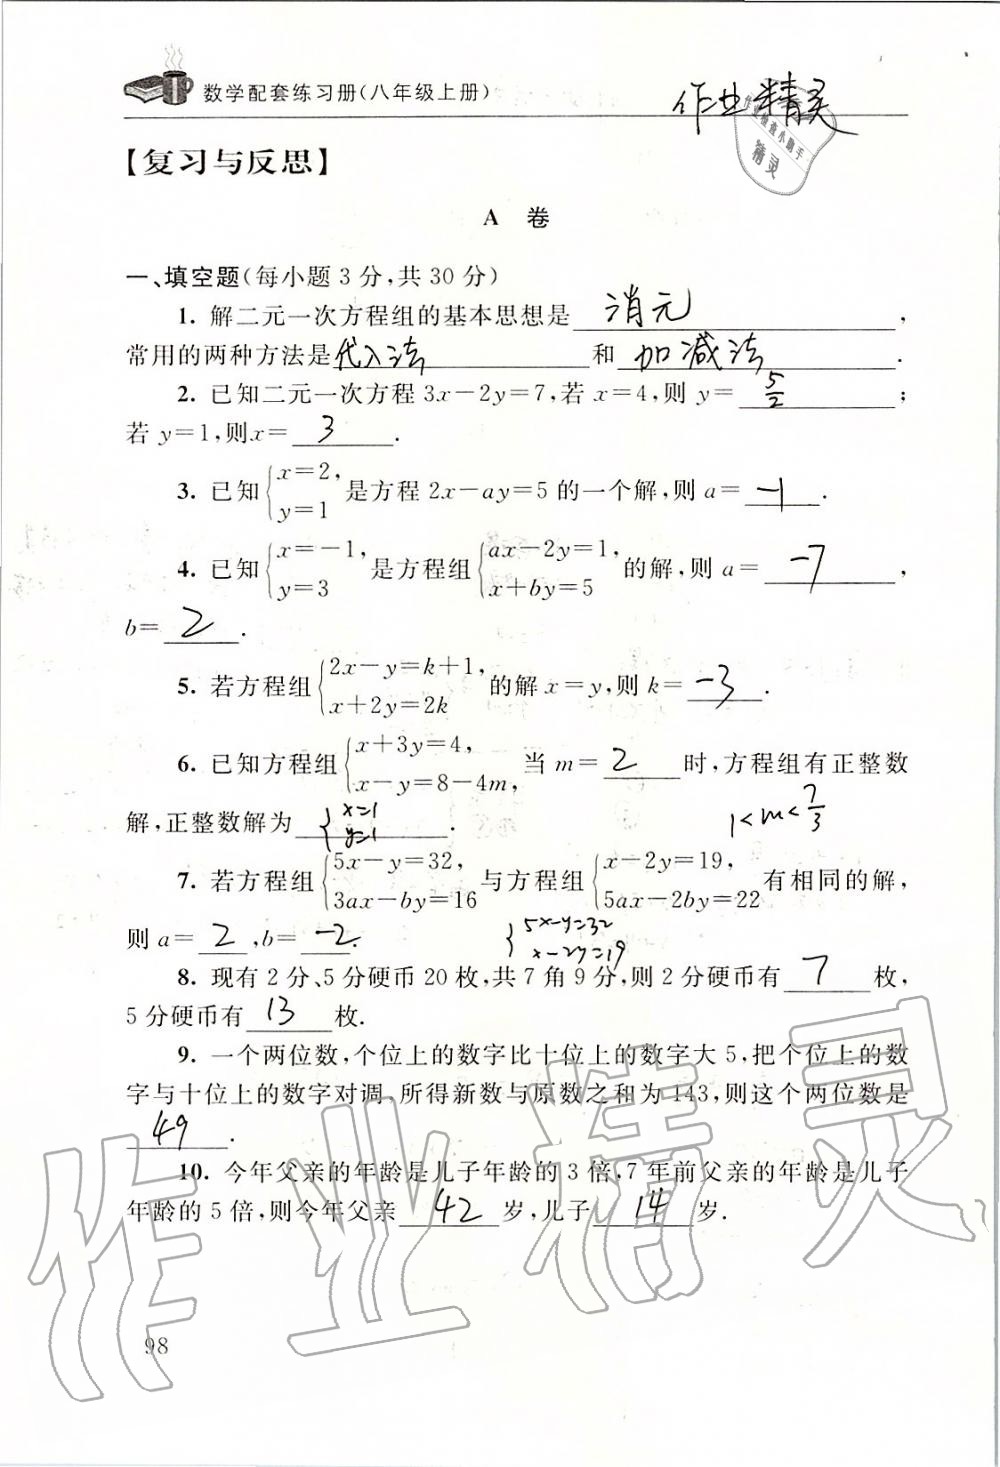 数学配套练习册(八年级上册)
作业精灵
作业检查小助手
精灵
【复习与反思】
A 卷
一、填空题(每小题3分,共30分)
1. 解二元一次方程组的基本思想是 消元 ,
常用的两种方法是 代入法 和 加减法 .
2. 已知二元一次方程3x-2y=7,若x=4,则y= 5/2 ;
若y=1,则x= 3 .
3. 已知{x=2, y=1 是方程2x-ay=5的一个解,则a= -1 .
4. 已知{x=-1, y=3 是方程组{ax-2y=1, x+by=5 的解,则a= -7 ,
b= 2 .
5. 若方程组{2x-y=k+1, x+2y=2k 的解x=y,则k= -3 .
6. 已知方程组{x+3y=4, x-y=8-4m, 当m= 2 时,方程组有正整数
解,正整数解为 {x=1 y=1 . 1<m<7/3
7. 若方程组{5x-y=32, 3ax-by=16 与方程组{x-2y=19, 5ax-2by=22 有相同的解,
则a= 2 ,b= -2 . {5x-y=32 x-2y=19
8. 现有2分、5分硬币20枚,共7角9分,则2分硬币有 7 枚,
5分硬币有 13 枚.
9. 一个两位数,个位上的数字比十位上的数字大5,把个位上的数
字与十位上的数字对调,所得新数与原数之和为143,则这个两位数是
49 .
10. 今年父亲的年龄是儿子年龄的3倍,7年前父亲的年龄是儿子
年龄的5倍,则今年父亲 42 岁,儿子 14 岁.
作业精灵
98